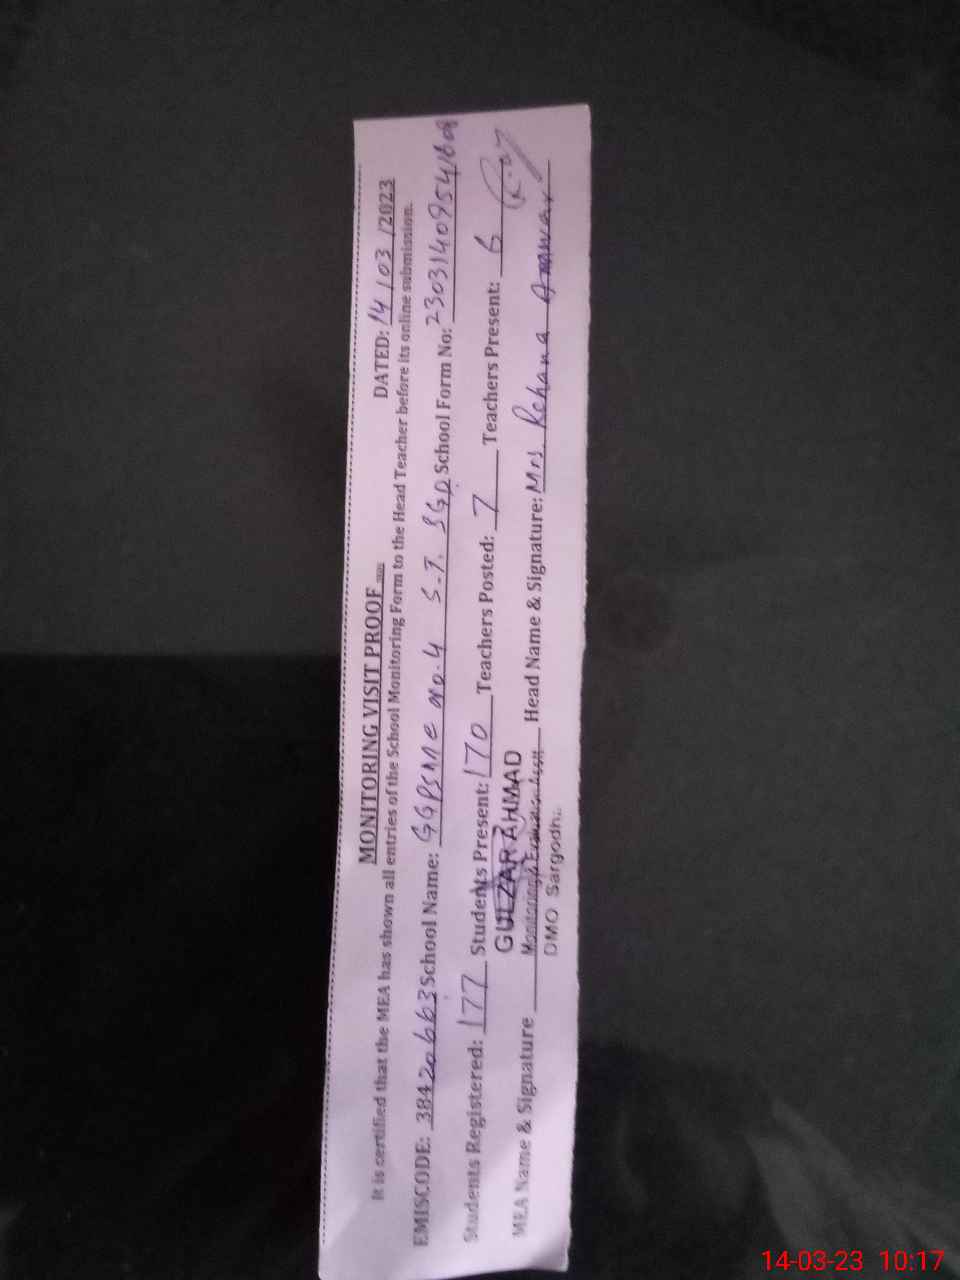 MONITORING VISIT PROOF
DATED: 14/03/2023
It is certified that the MEA has shown all entries of the School Monitoring Form to the Head Teacher before its online submission.
EMISCODE: 38420663 School Name: GGPSME No.4 S.T. SGD School Form No: 2303140954
Students Registered: 177 Students Present: 170 Teachers Posted: 7 Teachers Present: 6
GULZAR AHMAD
MEA Name & Signature Head Name & Signature: Mrs. Rehana
Monitoring & Evaluation Asstt.
DMO Sargodha
14-03-23 10:17